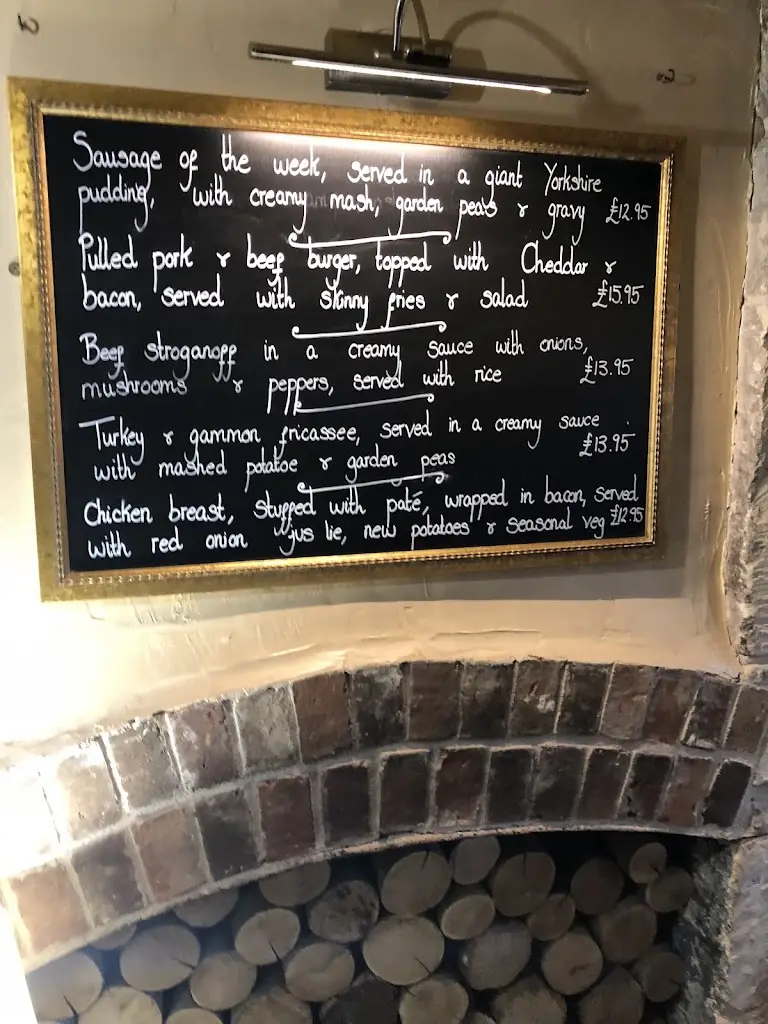 Sausage of the week, served in a giant Yorkshire
pudding, with creamy mash, garden peas & gravy £12.95
Pulled pork & beef burger, topped with Cheddar &
bacon, served with skinny fries & salad £15.95
Beef stroganoff in a creamy sauce with onions,
mushrooms & peppers, served with rice £13.95
Turkey & gammon fricassee, served in a creamy sauce
with mashed potatoe & garden peas £13.95
Chicken breast, stuffed with paté, wrapped in bacon, served
with red onion "jus lie, new potatoes & seasonal veg £12.95